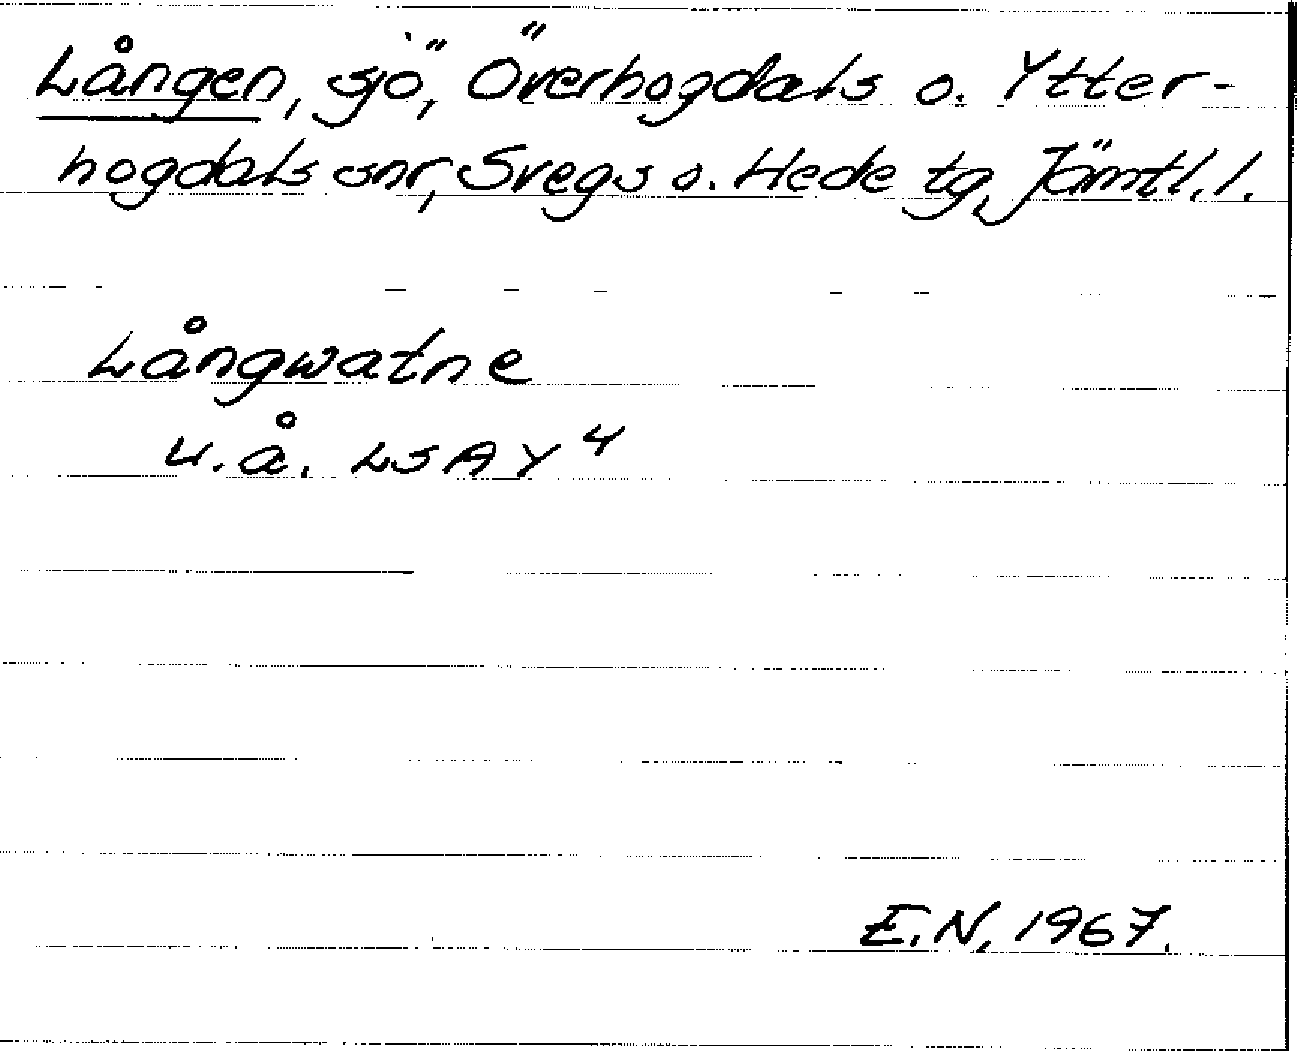 Lången, sjö, Överhogdals o. Ytter-
hogdals snr, Svegs o. Hede tg, Jämtl. l.
Långwatne
u.å. LSA Y 4
E.N. 1967.